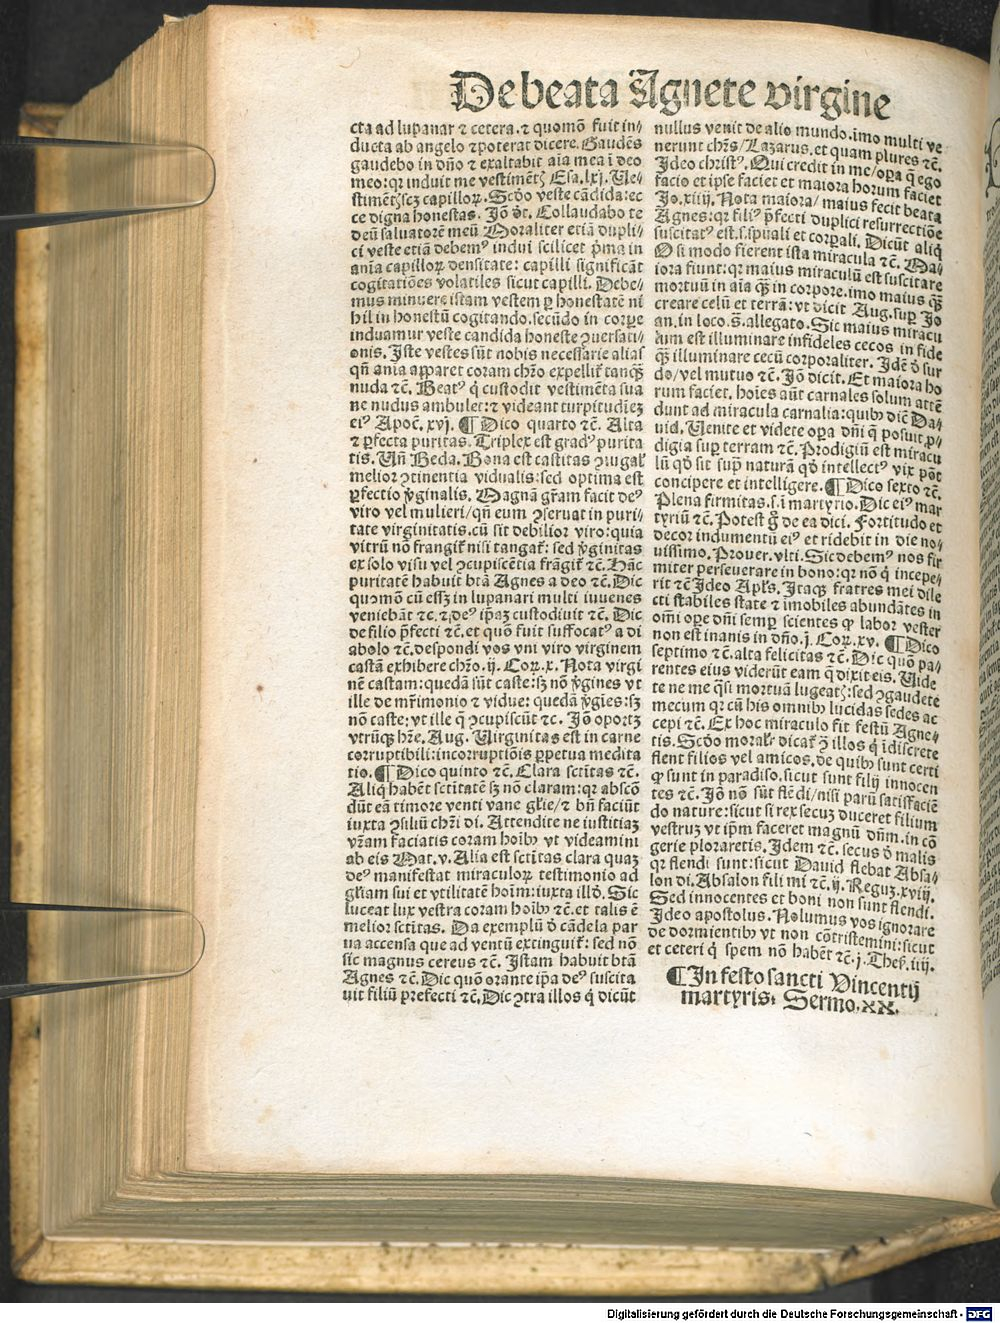 De beata Agnete virgine
cta ad lupanar ⁊ cetera. ⁊ quomō fuit in⸗
ducta ab angelo ⁊ poterat dicere. Gaudēs
gaudebo in dño ⁊ exaltabit aīa mea ī deo
meo: qꝛ induit me vestimētꝭ Esa. lxj. Ve⸗
stimētꝭ seꝫ capilloꝝ. Scďo veste cādida: ec
ce digna honestas. Jō ďr. Collaudabo te
deū saluatorē meū Moraliter etiā dupli⸗
ci veste etiā debemꝰ indui scilicet p̄ma in
anīa capilloꝝ densitate: capilli significāt
cogitatiōes volatiles sicut capilli. Debe⸗
mus minuere istam vestem ꝑ honestatē ni
hil in honestū cogitando. secūdo in corꝑe
induamur veste candida honeste ꝯuersati⸗
onis. Iste vestes sūt nobis necessarie alias
qñ anīa apparet coram chřo expellit̄ tanqꝫ
nuda ⁊č. Beatꝰ q̇ custodit vestimēta sua
ne nudus ambulet: ⁊ videant turpitudīeꝫ
eiꝰ Apoč. xvj. ¶ Dico quarto ⁊č. Alta
⁊ ꝑfecta puritas. Triplex est gradꝰ purita
tis. Vñ Beda. Bona est castitas ꝯiugaľ
melior ꝯtinentia vidualis: sed optima est
ꝑfectio ꝟginalis. Magnā gr̄am facit deꝰ
viro vel mulieri/ qñ eum ꝯseruat in puri⸗
tate virginitatis. cū sit debilior viro: quia
vitrū nō frangit̄ nisi tangat̄: sed ꝟginitas
ex solo visu vel ꝯcupiscētia frāgit̄ ⁊č. Hāc
puritatē habuit btā Agnes a deo ⁊č. Dic
quomō cū esſꝫ in lupanari multi iuuenes
veniebāt ⁊c. ⁊ deꝰ ip̄aꝫ custodiuit ⁊č. Dic
de filio p̄fecti ⁊č. et quō fuit suffocatꝰ a di
abolo ⁊č. despondi vos vni viro virginem
castā exhibere chřo. ij. Coꝝ. x. Nota virgi
nē castam: quedā sūt caste: sꝫ nō ꝟgines vt
ille de mr̄imonio ⁊ vidue: quedā ꝟgīes: sꝫ
nō caste: vt ille q̄ ꝯcupiscūt ⁊c. Jō oportꝫ
vtrūqꝫ hr̄e. Aug. Virginitas est in carne
corruptibili: incorruptiōis ꝑpetua medita
tio. ¶ Dico quinto ⁊č. Clara sctītas ⁊č.
Aliq̇ habēt sctītatē sꝫ nō claram: qꝛ abscō
dūt eā timore venti vane gľie/ ⁊ bñ faciūt
iuxta ꝯsiliū chři di. Attendite ne iustitiaꝫ
vr̄am faciatis coram hoībꝫ vt videamini
ab eis Mat. v. Alia est sctītas clara quaꝫ
deꝰ manifestat miraculoꝝ testimonio ad
gľiam sui et vtilitatē hoīm: iuxta illď. Sic
luceat lux vestra coram hoībꝫ ⁊č. et talis ē
melior sctītas. Da exemplū ď cādela par
ua accensa que ad ventū extinguit̄: sed nō
sic magnus cereus ⁊č. Istam habuit btā
Agnes ⁊č. Dic quō orante ip̄a deꝰ suscita
uit filiū prefecti ⁊č. Dic ꝯtra illos q̇ dicūt
nullus venit de alio mundo. imo multi ve
nerunt chřs/ Lazarus. et quam plures ⁊č.
Ideo christꝰ. Qui credit in me/ oꝑa q̄ ego
facio et ipse faciet et maiora horum faciet
Jo. xiiij. Nota maiora/ maius fecit beata
Agnes: qꝛ filiꝰ p̄fecti duplici resurrectiōe
suscitatꝰ est. s. spūali et corꝑali. Dicūt aliq̇
O si modo fierent ista miracula ⁊č. Ma⸗
iora fiunt: qꝛ maius miraculū est suscitare
mortuū in aīa qꝫ in corpore. imo maius qꝫ
creare celū et terrā: vt dicit Aug. suꝑ Jo
an. in loco. s̄. allegato. Sic maius miracu
lum est illuminare infideles cecos in fide
qꝫ illuminare cecū corporaliter. Idē ď sur
do/ vel mutuo ⁊č. Jō dicit. Et maiora ho
rum faciet. hoīes aūt carnales solum attē
dunt ad miracula carnalia: quibꝫ dič Da⸗
uid. Venite et videte oꝑa dñi q̄ posuit ꝓ⸗
digia suꝑ terram ⁊č. Prodigiū est miracu
lū qď sit supra naturā qď intellectꝰ vix pōt
concipere et intelligere. ¶ Dico sexto ⁊č.
Plena firmitas. s. ī martyrio. Dic eiꝰ mar
tyriū ⁊č. Potest g̊ de ea dici. Fortitudo et
decor indumentū eiꝰ et ridebit in die no⸗
uissimo. Prouer. vlti. Sic debemꝰ nos fir
miter perseuerare in bono: qꝛ nō q̇ incepe⸗
rit ⁊č Ideo Apľs. Itaqꝫ fratres mei dile
cti stabiles state ⁊ īmobiles abundātes in
omi oꝑe dñi semꝑ scientes ꝙ labor vester
non est inanis in dño. j. Coꝝ. xv. ¶ Dico
septimo ⁊č. alta felicitas ⁊č. Dic quō pa⸗
rentes eius viderūt eam q̄ dixit eis. Vide
te ne me q̇si mortuā lugeatꝭ: sed ꝯgaudete
mecum qꝛ cū his omnibꝫ lucidas sedes ac
cepi ⁊č. Ex hoc miraculo fit festū Agne⸗
tis. Scďo moraľr dicat̄ ꝯ illos q̇ īdiscrete
flent filios vel amicos, de quibꝫ sunt certi
ꝙ sunt in paradiso. sicut sunt filij innocen
tes ⁊č. Jō nō sūt flēdi/ nisi parū satisfaciē
do nature: sicut si rex secuꝫ duceret filium
vestruꝫ vt ip̄m faceret magnū dñm. in cō
gerie ploraretis. Idem ⁊č. secus ď malis
qꝛ flendi sunt: sicut Dauid flebat Absa⸗
lon di. Absalon fili mi ⁊č. ij. Reguꝫ. xviij.
Sed innocentes et boni non sunt flendi.
Ideo apostolus. Nolumus vos ignorare
de dormientibꝫ vt non cōtristemini: sicut
et ceteri q̇ spem nō habēt ⁊č. j. Theſ. iiij.
¶ In festo sancti Vincentij
martyris. Sermo. xx.
Digitalisierung gefördert durch die Deutsche Forschungsgemeinschaft - DFG